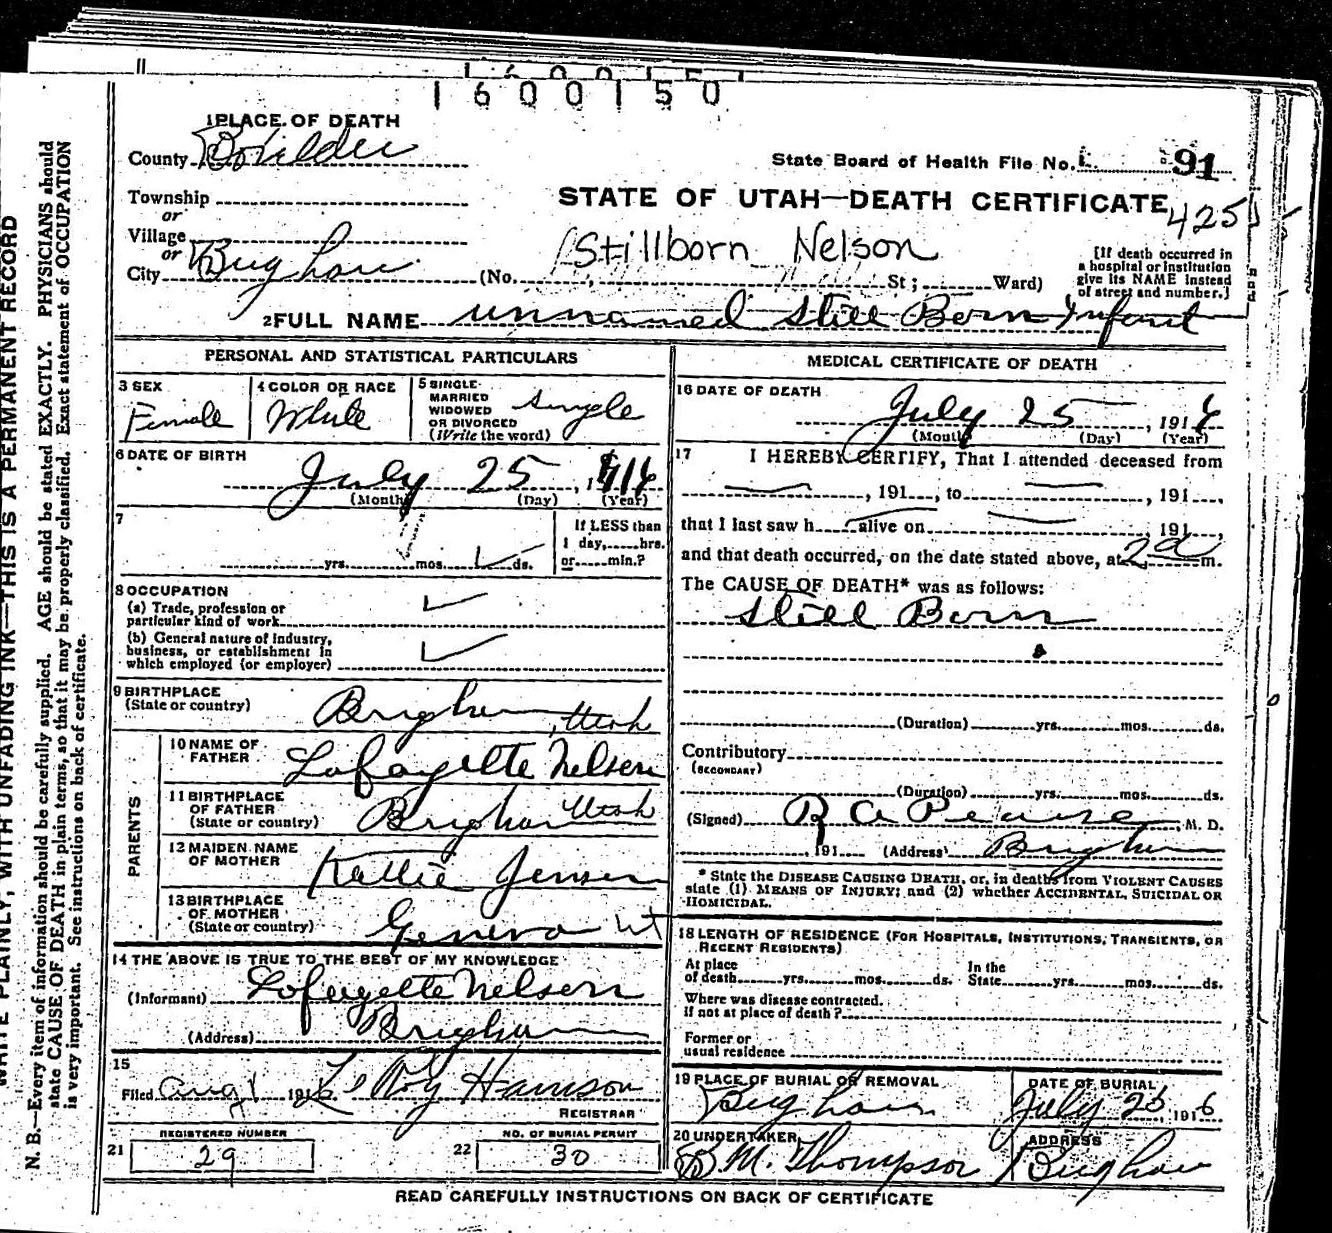 1600150
1 PLACE OF DEATH
County Boxelder
State Board of Health File No. 91
Township
or
Village
or
City Brigham
STATE OF UTAH—DEATH CERTIFICATE
425
Stillborn Nelson
(No. St; Ward)
[If death occurred in
a hospital or institution
give its NAME instead
of street and number.]
2 FULL NAME unnamed Still Born Infant
PERSONAL AND STATISTICAL PARTICULARS
3 SEX
Female
4 COLOR OR RACE
White
5 SINGLE
MARRIED
WIDOWED
OR DIVORCED
(Write the word)
Single
6 DATE OF BIRTH
July 25, 1916
(Month) (Day) (Year)
7
yrs. mos. ds.
If LESS than
1 day, hrs.
or min.?
8 OCCUPATION
(a) Trade, profession or
particular kind of work
(b) General nature of industry,
business, or establishment in
which employed (or employer)
9 BIRTHPLACE
(State or country)
Brigham, Utah
PARENTS
10 NAME OF
FATHER
Lafayette Nelsen
11 BIRTHPLACE
OF FATHER
(State or country)
Brigham Utah
12 MAIDEN NAME
OF MOTHER
Jensen
13 BIRTHPLACE
OF MOTHER
(State or country)
Geneva Ut
14 THE ABOVE IS TRUE TO THE BEST OF MY KNOWLEDGE
(Informant) Lafayette Nelsen
(Address) Brigham
15
Filed Aug 1 1916 Le Roy Harrison
REGISTRAR
REGISTERED NUMBER
21 29
NO. OF BURIAL PERMIT
22 30
MEDICAL CERTIFICATE OF DEATH
16 DATE OF DEATH
July 25, 1916
(Month) (Day) (Year)
17 I HEREBY CERTIFY, That I attended deceased from
, 191 , to , 191 ,
that I last saw h alive on 191 ,
and that death occurred, on the date stated above, at 2 a m.
The CAUSE OF DEATH* was as follows:
Still Born
(Duration) yrs. mos. ds.
Contributory
(SECONDARY)
(Duration) yrs. mos. ds.
(Signed) R A Pearse, M. D.
, 191 (Address) Brigham
* State the DISEASE CAUSING DEATH, or, in deaths from VIOLENT CAUSES
state (1) MEANS OF INJURY; and (2) whether ACCIDENTAL, SUICIDAL OR
HOMICIDAL.
18 LENGTH OF RESIDENCE (FOR HOSPITALS, INSTITUTIONS, TRANSIENTS, OR
RECENT RESIDENTS)
At place
of death yrs. mos. ds.
In the
State yrs. mos. ds.
Where was disease contracted.
If not at place of death?
Former or
usual residence
19 PLACE OF BURIAL OR REMOVAL
Brigham
DATE OF BURIAL
July 25 1916
20 UNDERTAKER
M. Thompson
ADDRESS
Brigham
READ CAREFULLY INSTRUCTIONS ON BACK OF CERTIFICATE
WRITE PLAINLY, WITH UNFADING INK—THIS IS A PERMANENT RECORD
N. B.—Every item of information should be carefully supplied. AGE should be stated EXACTLY. PHYSICIANS should
state CAUSE OF DEATH in plain terms, so that it may be properly classified. Exact statement of OCCUPATION
is very important. See instructions on back of certificate.